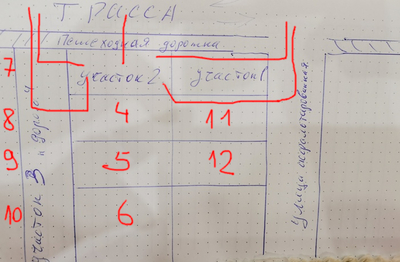 ТРАССА
Пешеходная дорожка
7 участок 2 участок 1
8 4 11
9 5 12
10 6
участок 3 и дорога
Улица асфальтированная